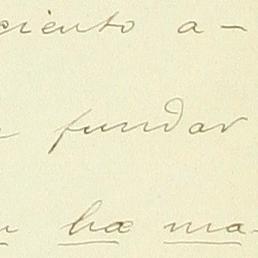 ciento a-
fundar
hæ ma-